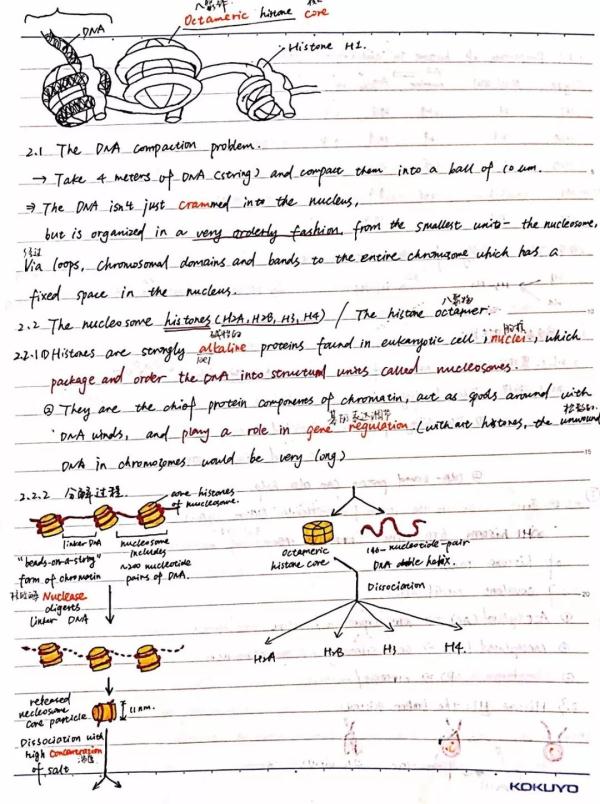 八聚体
Octameric histone core
DNA
Histone H1.
2.1 The DNA compaction problem.
→ Take 4 meters of DNA (string) and compact them into a ball of 10 um.
⇒ The DNA isn't just crammed into the nucleus,
but is organized in a very orderly fashion, from the smallest units - the nucleosome,
经过
Via loops, chromosomal domains and bands to the entire chromosome which has a
fixed space in the nucleus.
八聚物
2.2 The nucleosome histones (H2A, H2B, H3, H4) / The histone octamer.
碱性的
2.2.1① Histones are strongly alkaline proteins found in eukaryotic cell nuclei, which
package and order the DNA into structural units called nucleosomes.
② They are the chief protein components of chromatin, act as spools around with
基因表达调节
DNA winds, and play a role in gene regulation. (without histones, the unwound
DNA in chromosomes would be very long)
2.2.2 分解过程.
core histones
of nucleosome.
linker DNA
nucleosome
includes
~200 nucleotide
pairs of DNA.
"beads-on-a-string"
form of chromatin
Nuclease
digests
linker DNA
released
necleosome
core particle
11 nm.
Dissociation with
high Concentration
浓度
of salt
octameric
histone core
146-nucleotide-pair
DNA double helix.
Dissociation
H2A H2B H3 H4.
10
15
20
KOKUYO